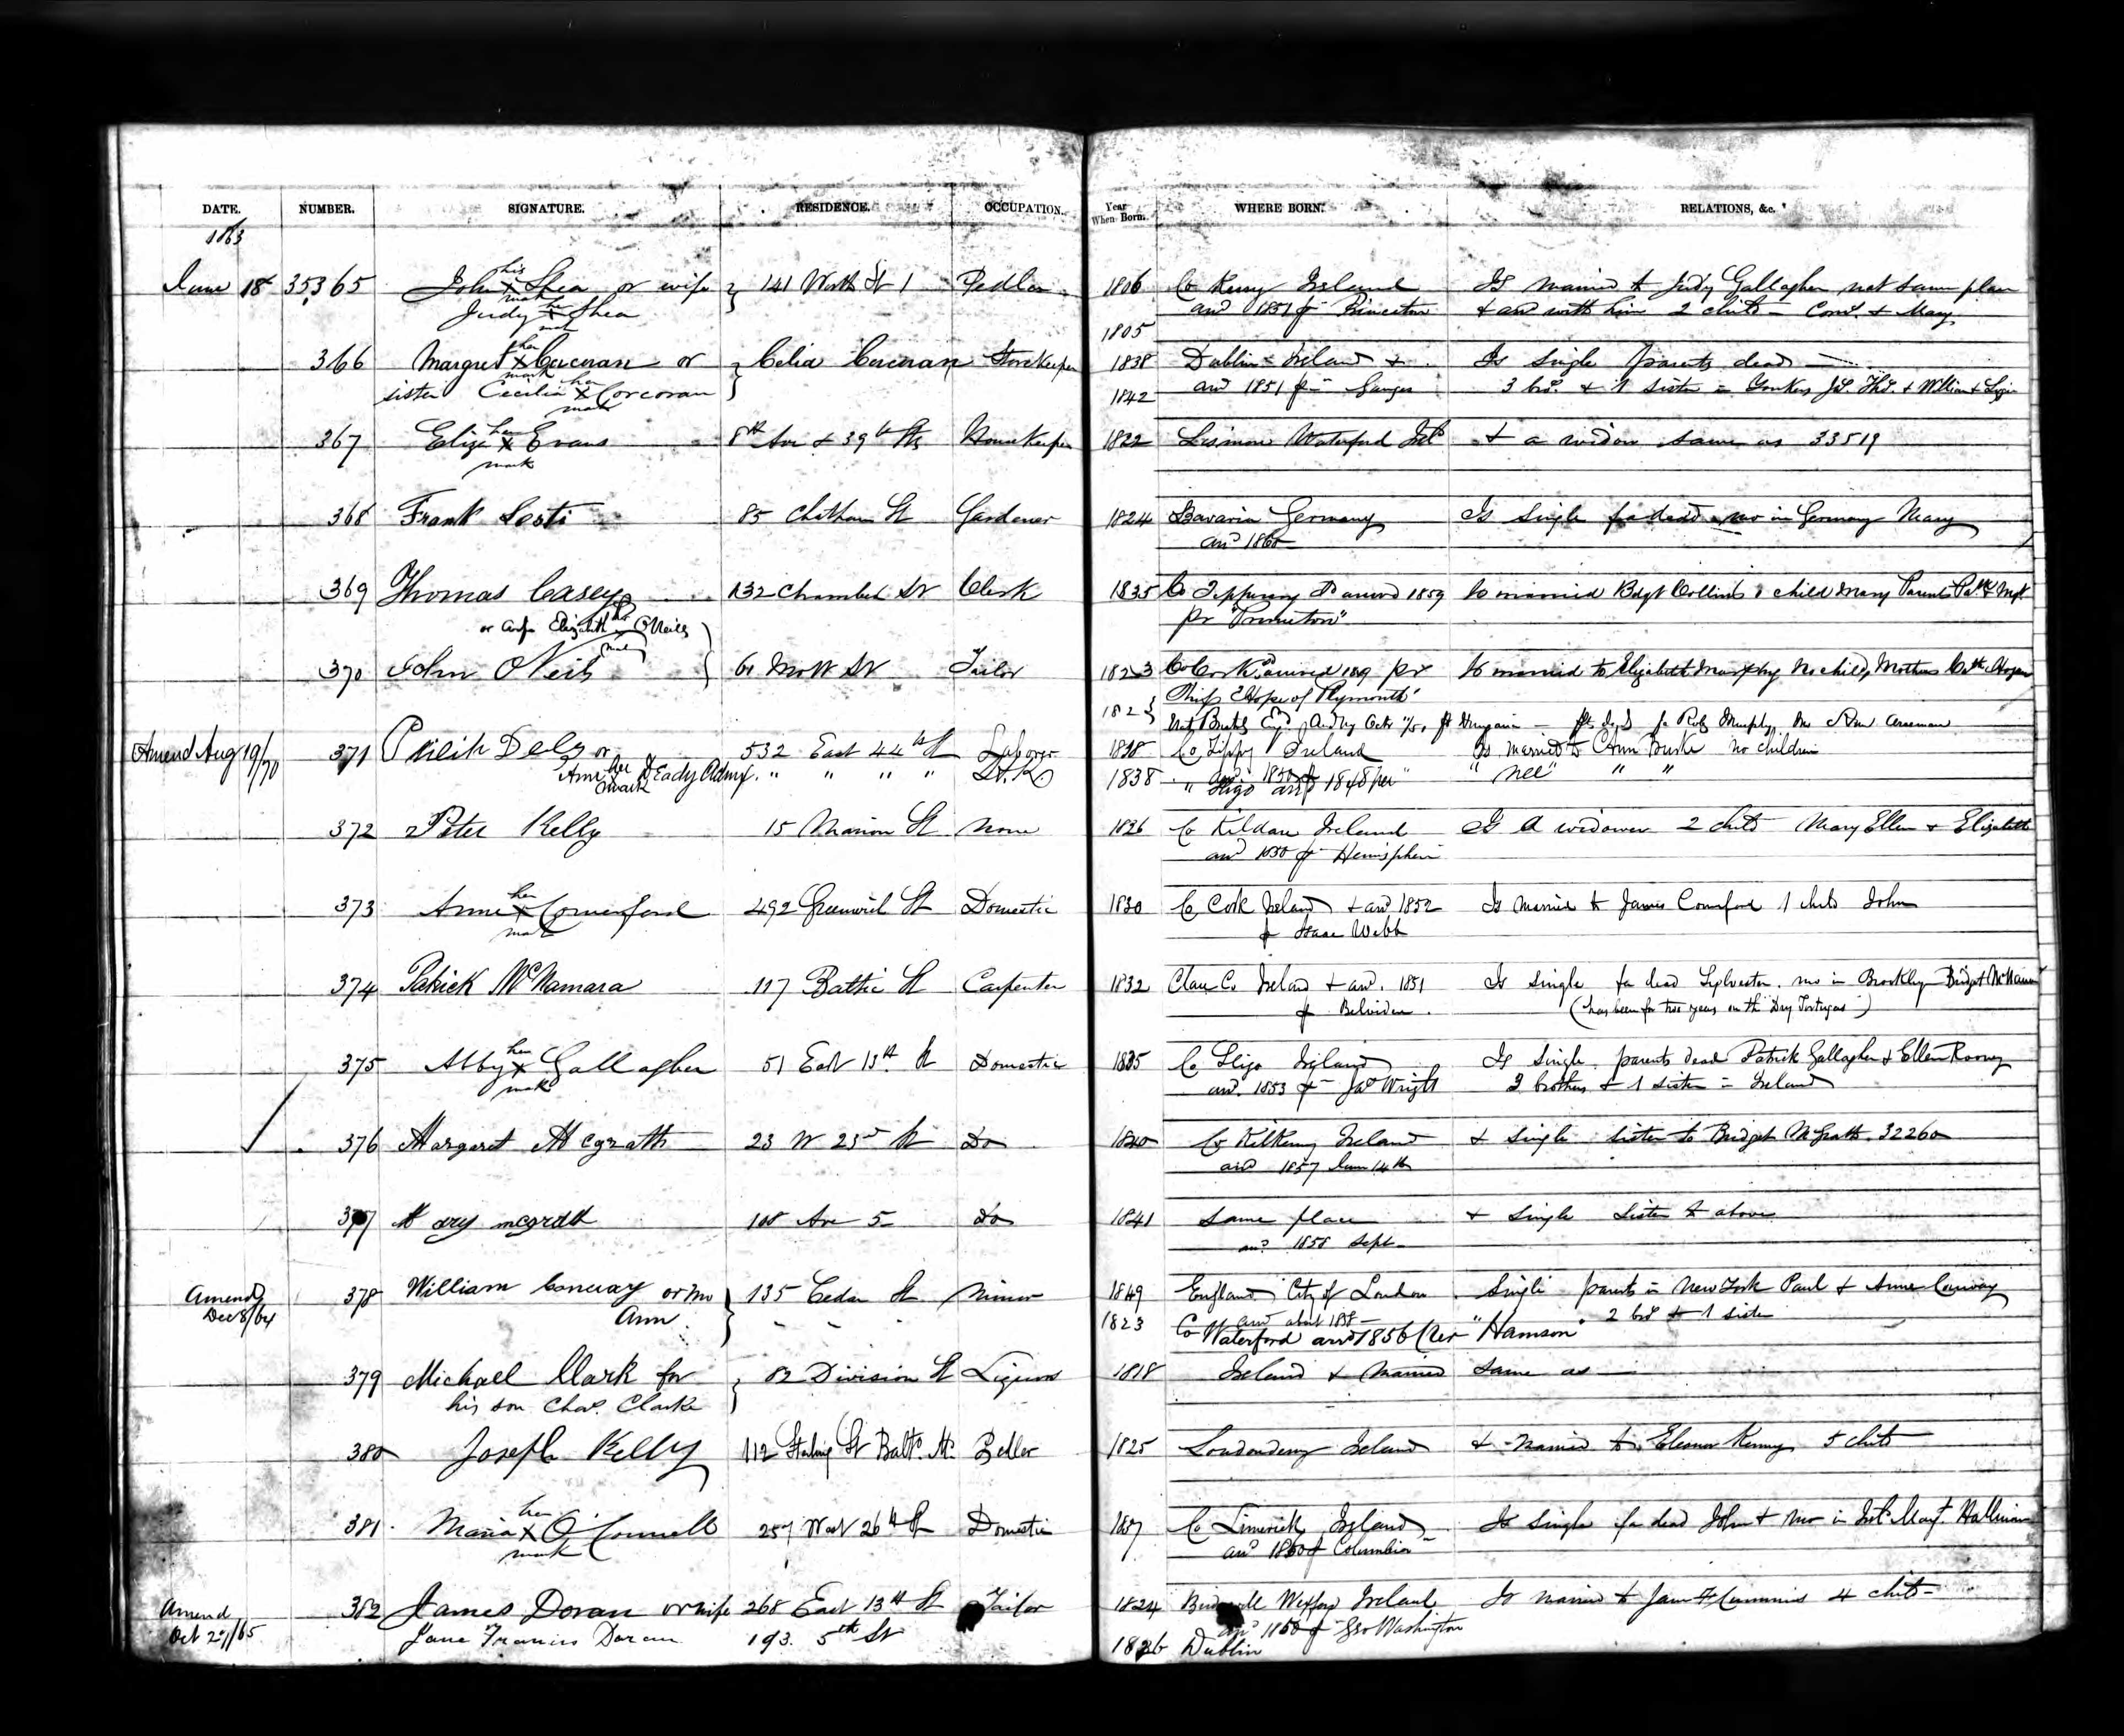 DATE. NUMBER. SIGNATURE. RESIDENCE. OCCUPATION. Year When Born. WHERE BORN. RELATIONS, &c.
1863
June 18 35365 John his Shea or wife 141 Worth St Pedlar 1806 Co Kerry Ireland Is married to Judy Gallagher not same place
mark her
Judy X Shea arrd 1851 Princeton & arrd with him 2 childn Cond. & Mary
mark 1805
366 Margret her X Corcoran or Celia Corcoran Storekeeper 1838 Dublin Ireland & Is single parents dead
mark
sister Cecilia her X Corcoran 1842 arrd 1851 Ganges 3 bro. & 1 sister in Yonkers & William
mark
367 Eliza her X Evans 8th Ave & 39th St Housekeeper 1822 Lismore Waterford Ireld & a widow same as 33519
mark
368 Frank 85 Chatham St Gardener 1824 Bavaria Germany Is single fa dead mo in Germany Mary
arrd 1860
369 Thomas Casey 132 Chamber St Clerk 1835 Co Tipperary arrived 1859 Is married Bdgt Collins 1 child Mary Parents
or wife Elizabeth her X O'Neill pr "Princeton"
mark
370 John O Neil 61 Mott St Tailor 1823 Co Cork arrived 1849 pr Is married to Elizabeth Murphy no child, Mother Cath Hogan
Ship "Hope of Plymouth"
182
Amend Aug 19/70 371 532 East 44th St Laborer 1818 Co Tippy Ireland Is married to Ann Burke no children
Ann her X Eady Admx. " " " " 1838 arrd 1850 "nee" " "
mark " Sligo arrd 1848 per "
372 Peter Kelly 15 Marion St None 1826 Co Kildare Ireland Is a widower 2 childn Mary Ellen & Elizabeth
arrd 1850 Hemisphere
373 Anne her X Comerford 492 Greenwich St Domestic 1830 Co Cork Ireland & arrd 1852 Is married to James Comerford 1 child John
mark Isaac Webb
374 Patrick McNamara 117 Baltic St Carpenter 1832 Clare Co Ireland & arrd. 1851 Is single fa dead Sylvester. mo in Brooklyn Bridget McNamara
Belvidere. (has been for two years on the Dry Tortugas)
375 Abby her X Gallagher 51 East 13th St Domestic 1835 Co Sligo Ireland Is single. parents dead Patrick Gallagher & Ellen Rooney
mark arrd. 1853 Jas Wright 2 brothers & 1 sister in Ireland
376 Margaret Mcgrath 23 W 23rd St Do 1840 Co Kilkenny Ireland & single sister to Bridget McGrath. 32260
arrd 1857 June 14th
377 Mary mcgrath 108 Ave 5 Do 1841 Same place & single sister to above
arrd 1858 Sept
Amend Dec 8/64 378 William Conway or mo 135 Cedar St Minor 1849 England City of London Single parents in New York Paul & Anne Conway
Ann 1823 arrd about 1858 2 bro & 1 sister
Co Waterford arrd 1856 Per
379 Michael Clark for 82 Division St Liquors 1818 Ireland & married same as
his son Chas. Clarke
380 Joseph Kelly 112 St Balto. Md Pedler 1825 Londonderry Ireland & married to Eleanor Kenny 5 childn
381. Maria her X O'Connell 257 West 26th St Domestic 1837 Co Limerick Ireland Is single fa dead John & mo in Ireld Margt. Hallinan
mark arrd 1860 Columbia
Amend 382 James Doran or wife 268 East 13th St Tailor 1824 Wexford Ireland Is married to Jane F Cummins 4 childn
Oct 27/65 Jane Francis Doran 193. 5th St arrd 1850 Geo Washington
1826 Dublin